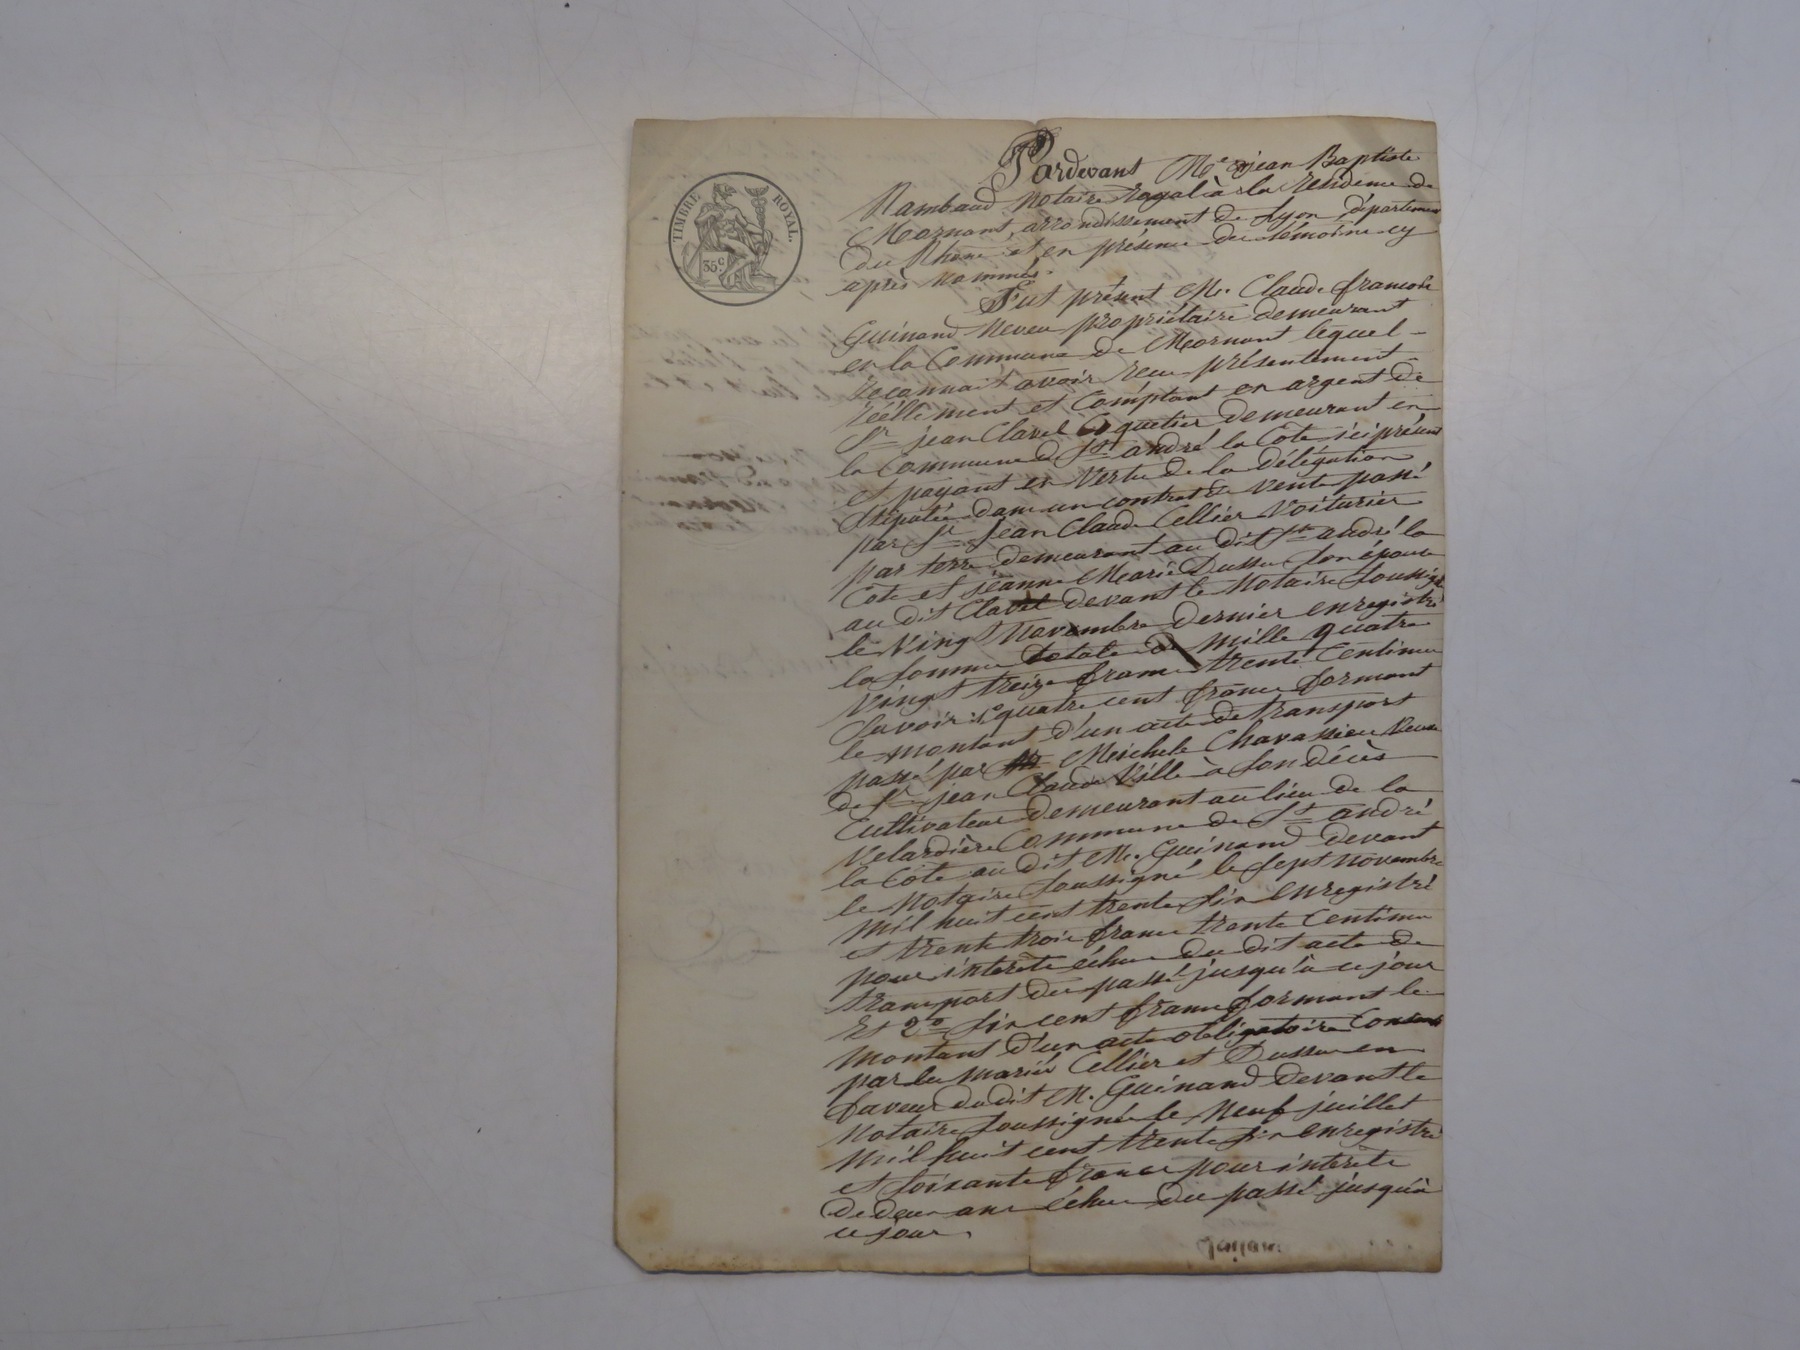 TIMBRE ROYAL.
35 c.
Pardevant Me jean Baptiste
Rambaud Notaire Royal à la residence de
Mornant, arrondissement de Lyon, département
du Rhone et en présence des témoins cy
après nommés.
Fut présent M. Claude francois
Guinand Neveu propriétaire demeurant
en la Commune de Mornant lequel
reconnait avoir recu présentement
réèllement et Comptant en argent de
Sr jean Clavel Coquetier demeurant en
la Commune de St andré la Cote ici présent
et payant en Vertu de la délégation
stipulée dans un contrat de Vente passé
par Sr Jean Claude Cellier Voiturier
par terre demeurant au dit St andré la
Cote et jeanne Marie Dussu son épouse
au dit Clavel devant le Notaire soussigné
le Vingt Novembre dernier enregistré
la somme totale de mille quatre
Vingt treize francs trente Centimes
Savoir: 1° quatre cent francs formant
le montant d'un acte de transport
passé par Michele Chavassieu Veuve
de Sr jean Claude Ville à son décès
Cultivateur demeurant au lieu de la
Velardière Commune de St andré
la Cote au dit M. Guinand devant
le Notaire soussigné le sept novembre
mil huit cent trente six enregistré
et trente trois francs trente Centimes
pour intérets échus du dit acte de
transport du passé jusqu'à ce jour
Et 2° six cent francs formant le
montant d'un acte obligatoire Consenti
par les mariés Cellier et Dussu en
faveur du dit M. Guinand devant le
Notaire soussigné le Neuf juillet
mil huit cent trente six enregistré
et soixante francs pour intérets
de deux ans échus du passé jusqu'à
ce jour.